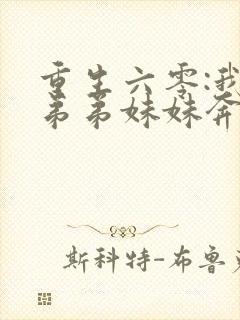 重生六零:我
弟弟妹妹奔
斯科特-布鲁